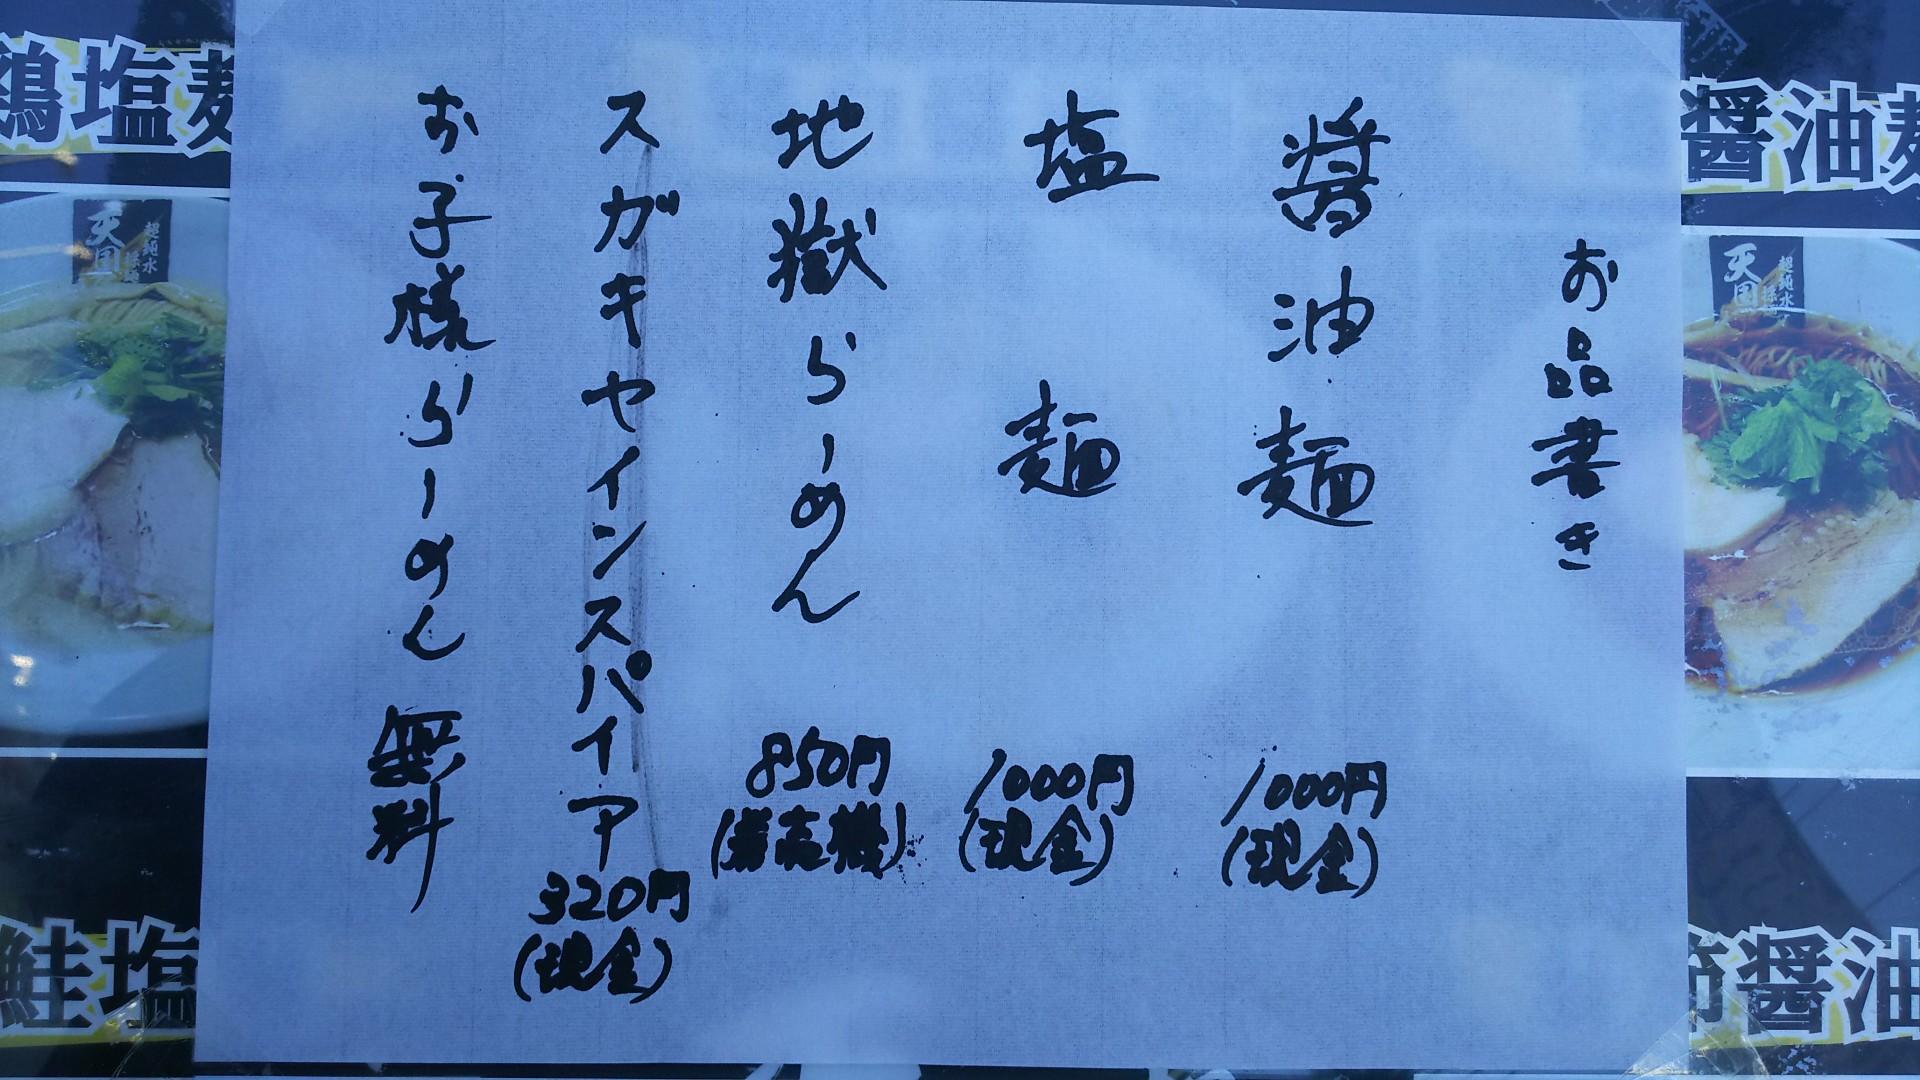 お品書き
醤油麺 1000円
(現金)
塩麺 1000円
(現金)
地獄らーめん 850円
(券売機)
スガキヤインスパイア 320円
(現金)
お子様らーめん 無料
醤油麺
天国
超純水
採麺
節醤油
鶏塩麺
天国
超純水
採麺
鮭塩